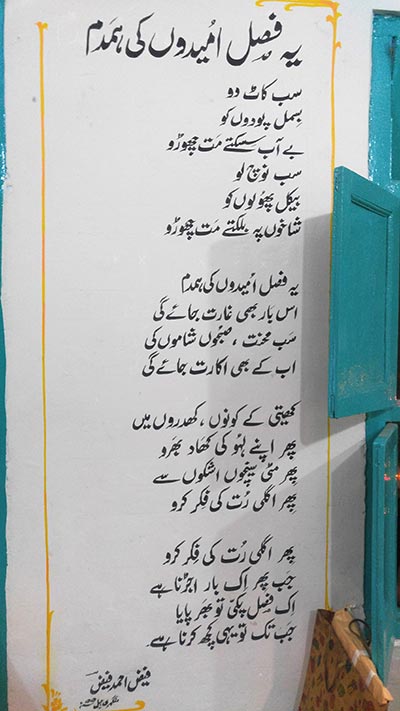 یہ فصل اُمیدوں کی ہمدم
سب کاٹ دو
بسمل پودوں کو
بے آب سسکتے مت چھوڑو
سب نوچ لو
بیکل پھولوں کو
شاخوں پہ بلکتے مت چھوڑو
یہ فصل اُمیدوں کی ہمدم
اس بار بھی غارت جائے گی
سب محنت، صبحوں شاموں کی
اب کے بھی اکارت جائے گی
کھیتی کے کونوں، کھدروں میں
پھر اپنے لہو کی کھاد بھرو
پھر مٹی سینچوں اشکوں سے
پھر اگلی رُت کی فِکر کرو
پھر اگلی رُت کی فِکر کرو
جب پھر اِک بار اجڑنا ہے
اک فصل پکی تو بھر پایا
جب تک تو یہی کچھ کرنا ہے
فیض احمد فیض